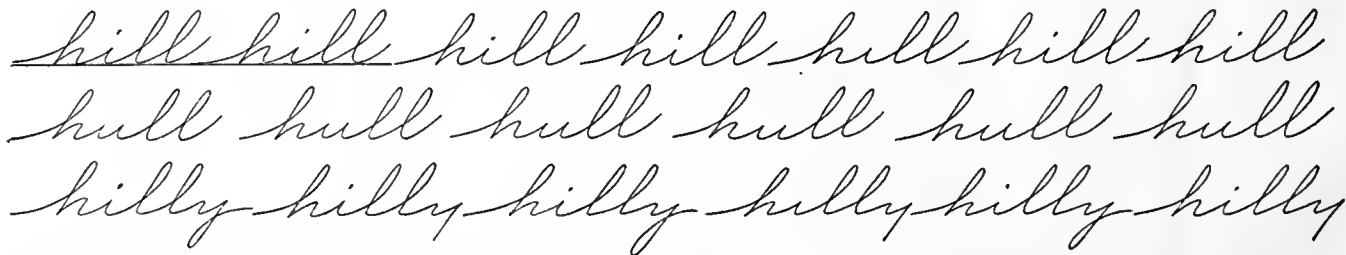 hill hill hill hill hill hill hill
hull hull hull hull hull hull
hilly hilly hilly hilly hilly hilly